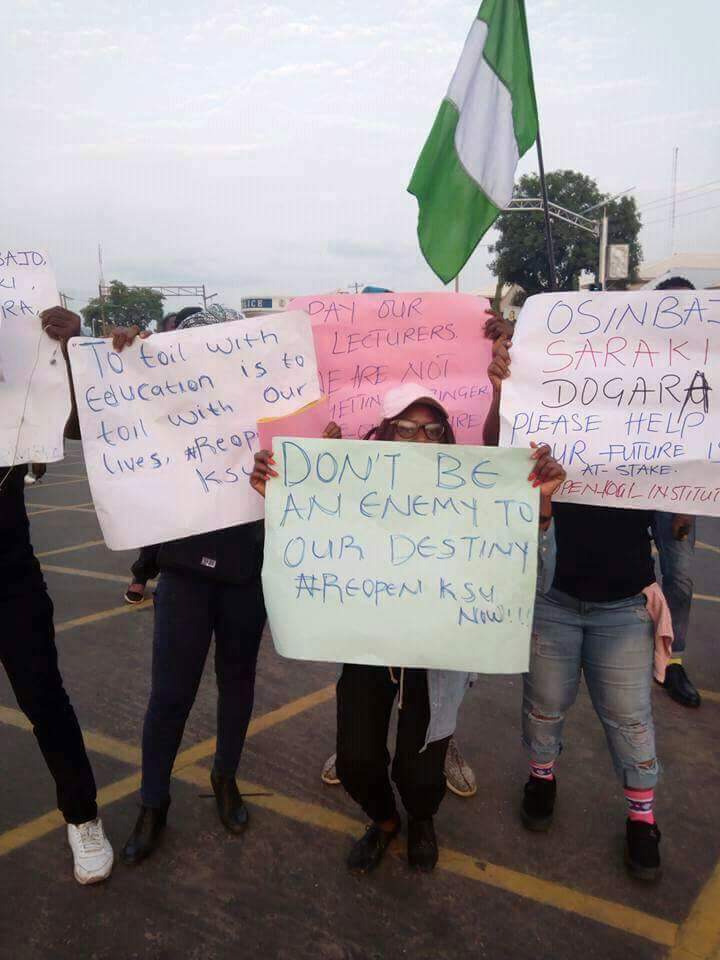 BAJO,
KI,
RA,
To toil with
Education is to
toil with our
lives, #Reop
KSU
PAY OUR
LECTURERS.
WE ARE NOT
GETTIN
DON'T BE
AN ENEMY TO
OUR DESTINY
#REOPEN KSU
NOW!!!
OSINBA
SARAKI
DOGARA
PLEASE HELP
OUR FUTURE IS
AT-STAKE.
PEN KOGI INSTITUT
LICE